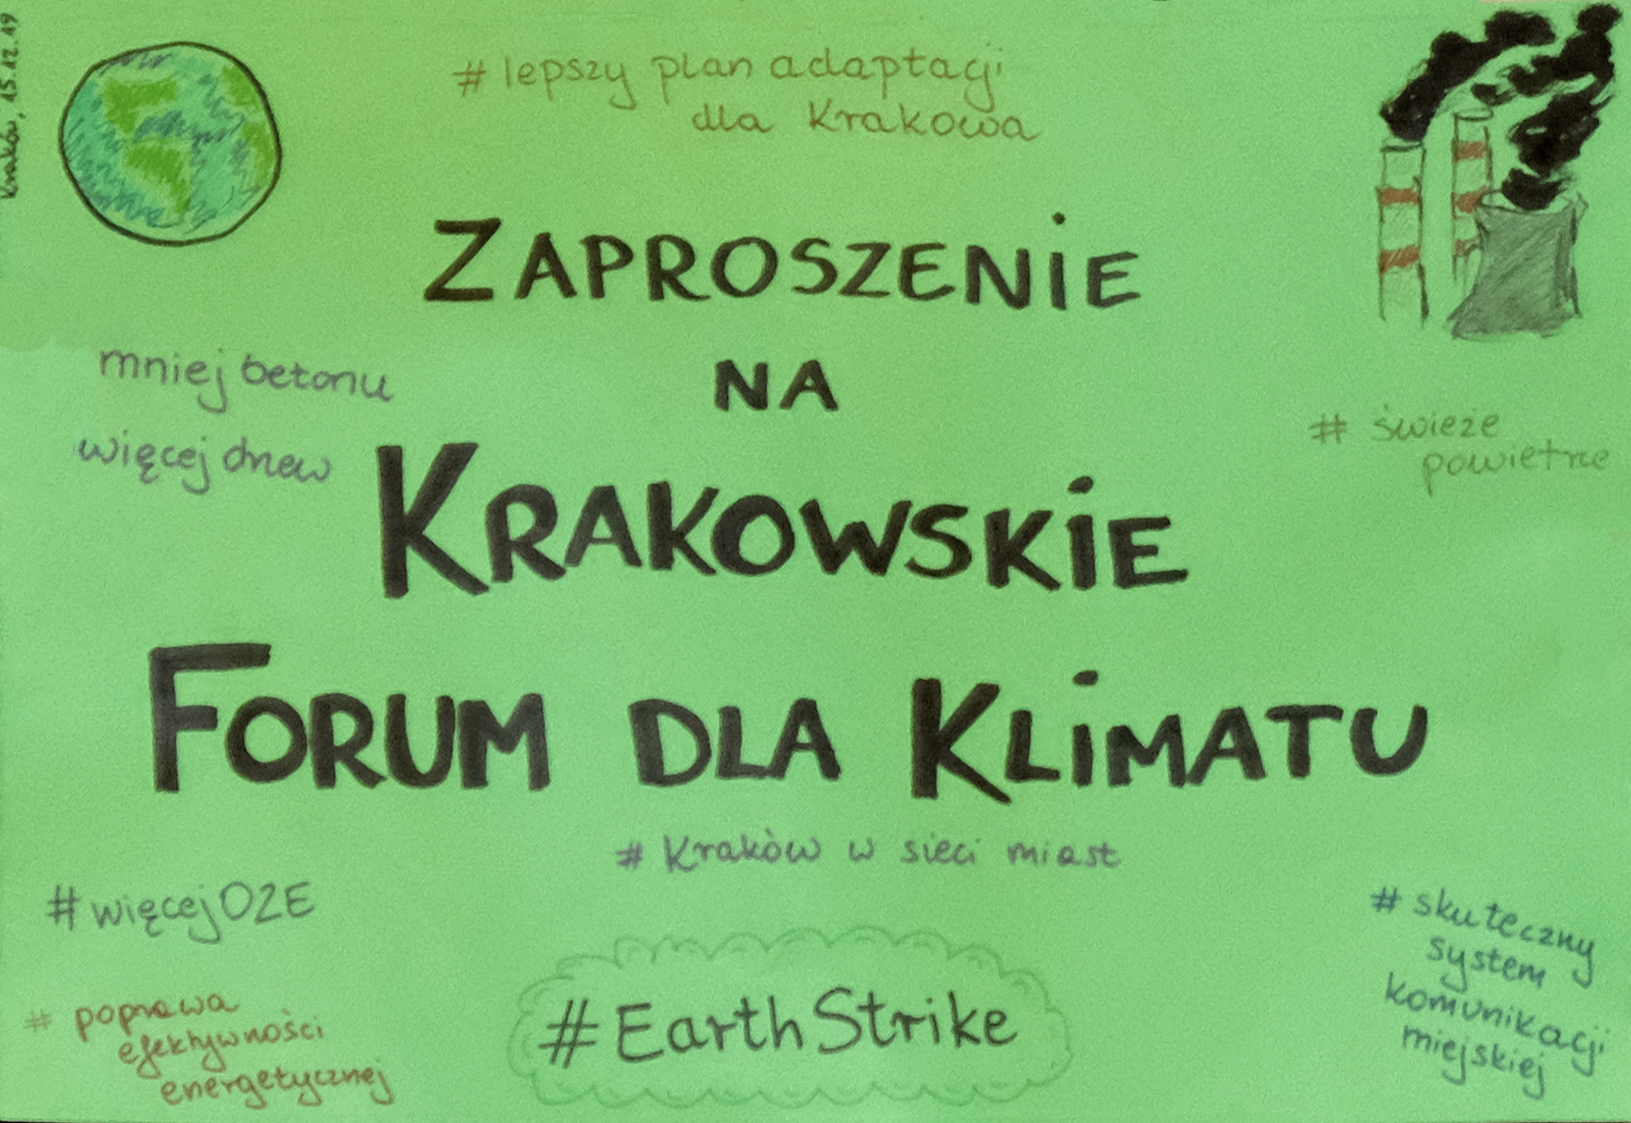 Kraków, 15.12.19
#lepszy plan adaptacji
dla Krakowa
ZAPROSZENiE
NA
KRAKOWSKiE
FORUM DLA KLiMATU
mniej betonu
więcej drzew
# świeże
powietrze
# Kraków w sieci miast
#więcejOZE
# poprawa
efektywności
energetycznej
#EarthStrike
# skuteczny
system
komunikacji
miejskiej